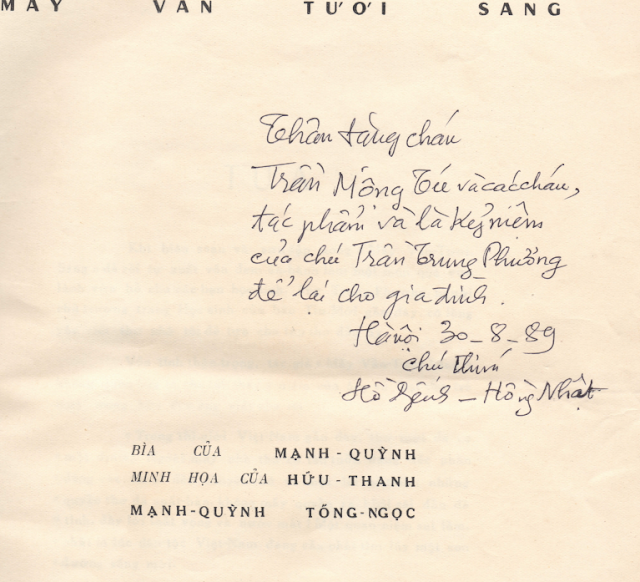 MÂY VẪN TƯƠI SÁNG
Thân tặng cháu
Trần Mộng Tú và các cháu,
tác phẩm và là kỷ niệm
của chú Trần Trung Phương
để lại cho gia đình.
Hà nội 30-8-89
chú thím
Hồ Dzếnh - Hồng Nhật
BÌA CỦA MẠNH-QUỲNH
MINH HỌA CỦA HỨU-THANH
MẠNH-QUỲNH TỐNG-NGỌC